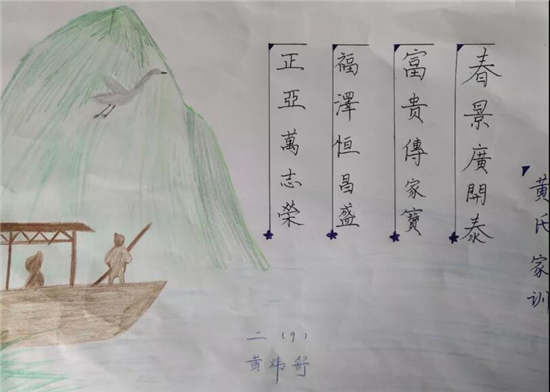 黄氏家训
春景廣開泰
富贵傳家寳
福澤恒昌盛
正亞萬志榮
二（9）
黄炜舒